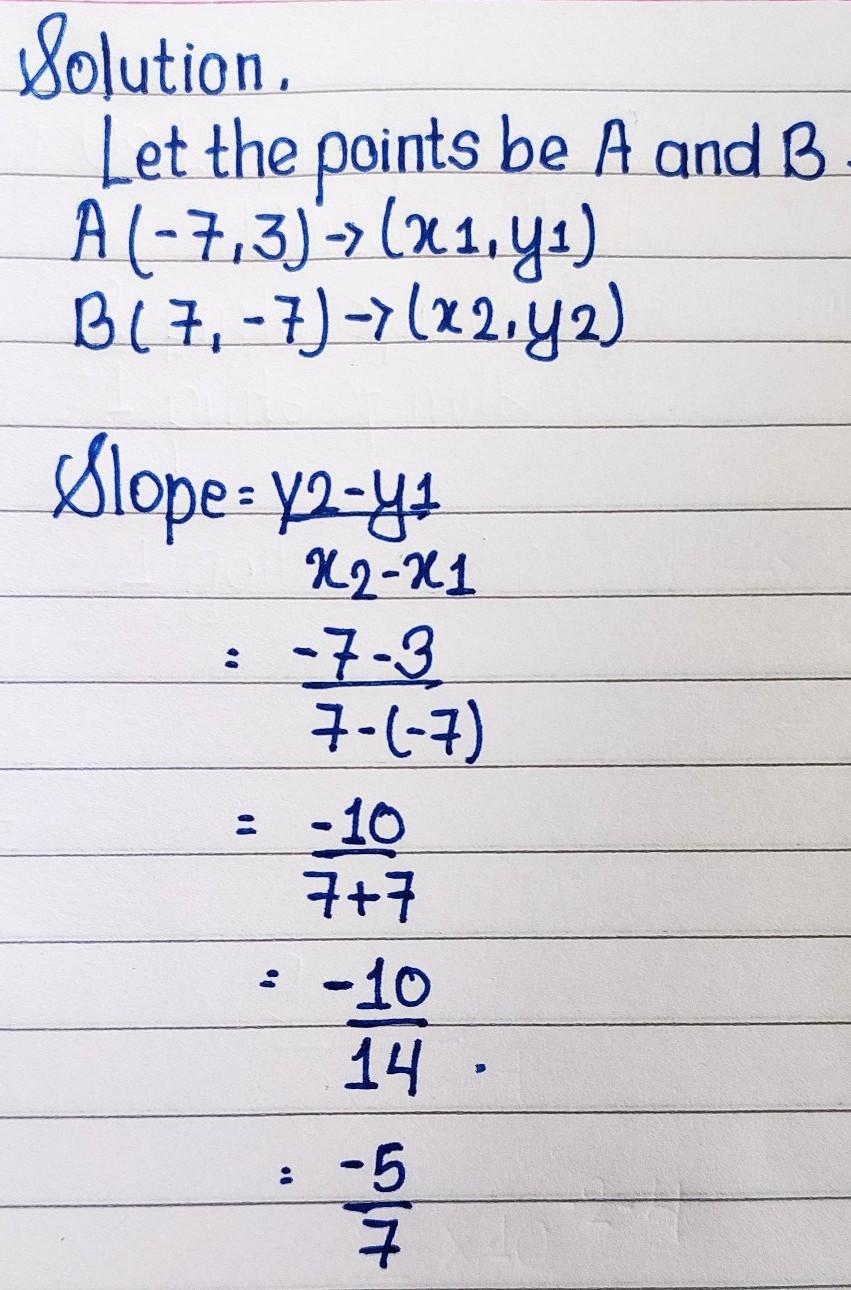 Solution.
Let the points be A and B.
A(-7,3)->(x1,y1)
B(7,-7)->(x2,y2)
Slope = y2-y1
x2-x1
= -7-3
7-(-7)
= -10
7+7
= -10
14.
= -5
7